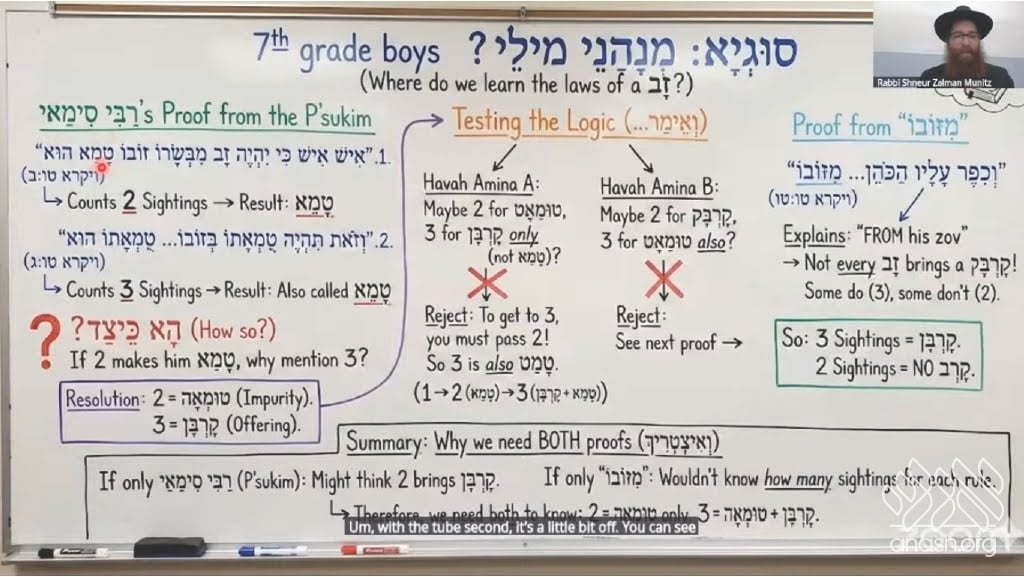 7th grade boys סוּגְיָא: מְנָהָנֵי מִילֵי?
(Where do we learn the laws of a זָב?)
Rabbi Shneur Zalman Munitz
רַבִּי סִימַאי's Proof from the P'sukim
1. "אִישׁ אִישׁ כִּי יִהְיֶה זָב מִבְּשָׂרוֹ זוֹבוֹ טָמֵא הוּא"
(ויקרא טו:ב)
↳ Counts 2 Sightings → Result: טָמֵא
2. "וְזֹאת תִּהְיֶה טֻמְאָתוֹ בְּזוֹבוֹ... טֻמְאָתוֹ הוּא"
(ויקרא טו:ג)
↳ Counts 3 Sightings → Result: Also called טָמֵא
? הָא כֵּיצַד? (How so?)
If 2 makes him טָמֵא, why mention 3?
Resolution: 2 = טוּמְאָה (Impurity).
3 = קָרְבָּן (Offering).
Testing the Logic (וְאֵימַר...)
Havah Amina A:
Maybe 2 for טוּמְאָט,
3 for קָרְבָּן only
(not טָמֵא)?
Reject: To get to 3,
you must pass 2!
So 3 is also טָמֵט.
(1→2 (טָמֵא)→3 (קָרְבָּן + טָמֵא))
Havah Amina B:
Maybe 2 for קָרְבָּק,
3 for טוּמְאָט also?
Reject:
See next proof →
Proof from "מִזּוֹבוֹ"
"וְכִפֶּר עָלָיו הַכֹּהֵן... מִזּוֹבוֹ"
(ויקרא טו:טו)
Explains: "FROM his zov"
→ Not every זָב brings a קָרְבָּק!
Some do (3), some don't (2).
So: 3 Sightings = קָרְבָּן.
2 Sightings = NO קָרְב.
Summary: Why we need BOTH proofs (וְאִיצְטְרִיךְ)
If only רַבִּי סִימַאי (P'sukim): Might think 2 brings קָרְבָּן.
If only "מִזּוֹבוֹ": Wouldn't know how many sightings for each rule.
↳ Therefore, we need both to know: 2 = טוּמְאָה only, 3 = קָרְבָּן + טוּמְאָה.
Um, with the tube second, it's a little bit off. You can see
anash.org